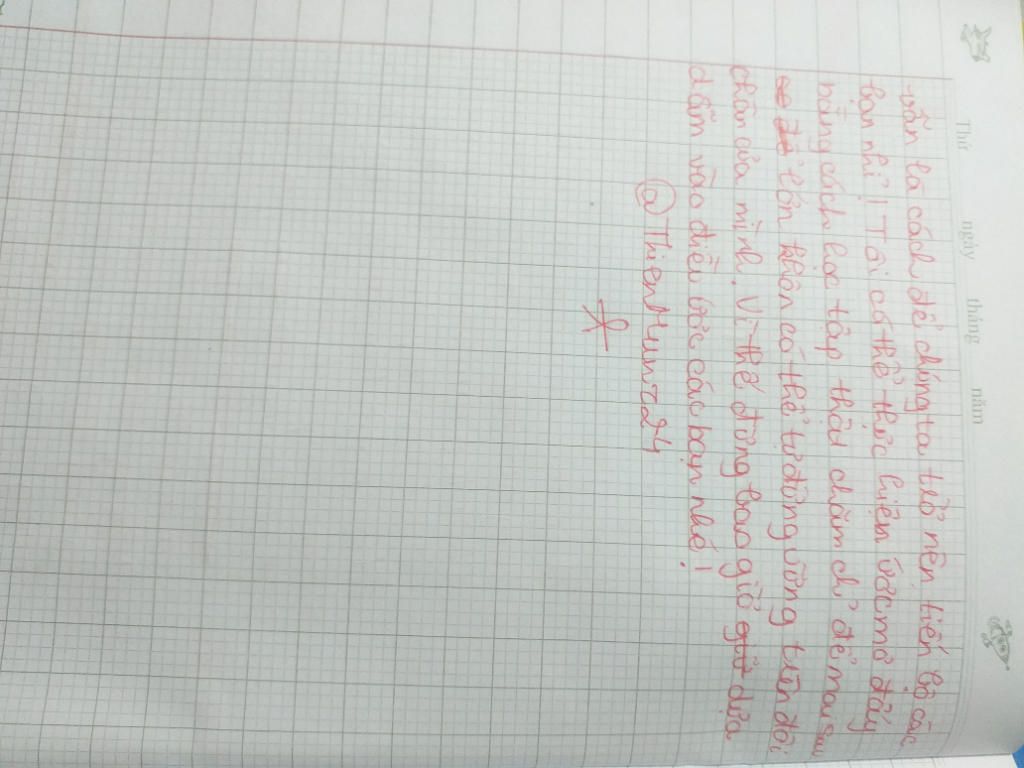 Thứ ngày tháng năm
vẫn là cách để chúng ta trở nên tiến bộ các
bạn nhỉ! Tôi có thể thực hiện ước mơ đấy
bằng cách học tập thật chăm chỉ để mai sau
lớn khôn có thể tự đứng vững trên đôi
chân của mình. Vì thế đừng bao giờ dựa
dẫm vào điều ước các bạn nhé!
@ThienMunz24